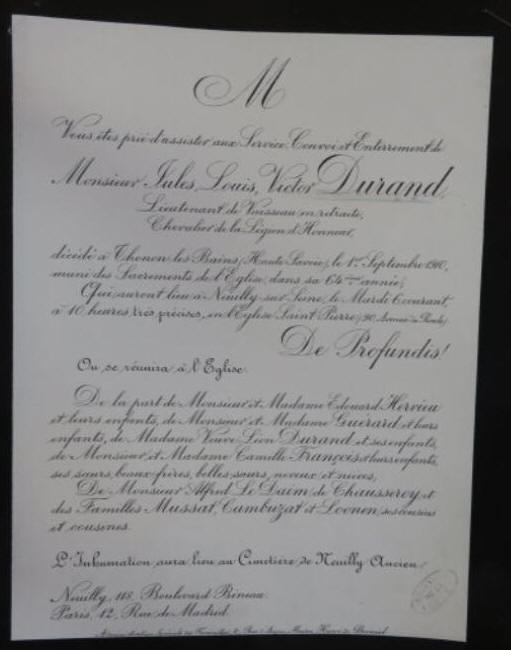 M
Vous êtes prié d'assister aux Service, Convoi et Enterrement de
Monsieur Jules, Louis, Victor Durand,
Lieutenant de Vaisseau en retraite,
Chevalier de la Légion d'Honneur,
décédé à Thonon les Bains (Haute Savoie), le 1er Septembre 1910,
muni des Sacrements de l'Eglise, dans sa 64ème année;
Qui auront lieu à Neuilly-sur-Seine, le Mardi 6 courant,
à 10 heures très précises, en l'Eglise Saint Pierre, (90 Avenue du Roule)
De Profundis!
On se réunira à l'Eglise.
De la part de Monsieur et Madame Edouard Hervieu
et leurs enfants, de Monsieur et Madame Guérard et leurs
enfants, de Madame Veuve Léon Durand et ses enfants,
de Monsieur et Madame Camille François et leurs enfants,
ses sœurs, beaux-frères, belles-sœurs, neveux et nièces,
De Monsieur Alfred Le Daim de Chausseroy et
des Familles Mussat, Cambuzat et Loonen, ses cousins
et cousines.
L'Inhumation aura lieu au Cimetière de Neuilly Ancien.
Neuilly, 118, Boulevard Bineau.
Paris, 12, Rue de Madrid.